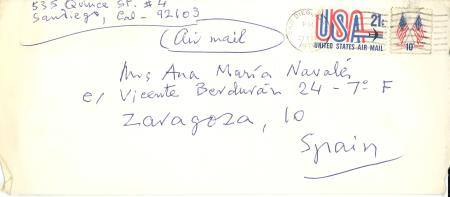 535 Quince St. # 4
Sandiego, Cal - 92103
Air mail
USA 21c
UNITED STATES AIR MAIL
10c
Mrs Ana María Navalés
c/ Vicente Berdurán 24 - 7º F
Zaragoza, 10
Spain